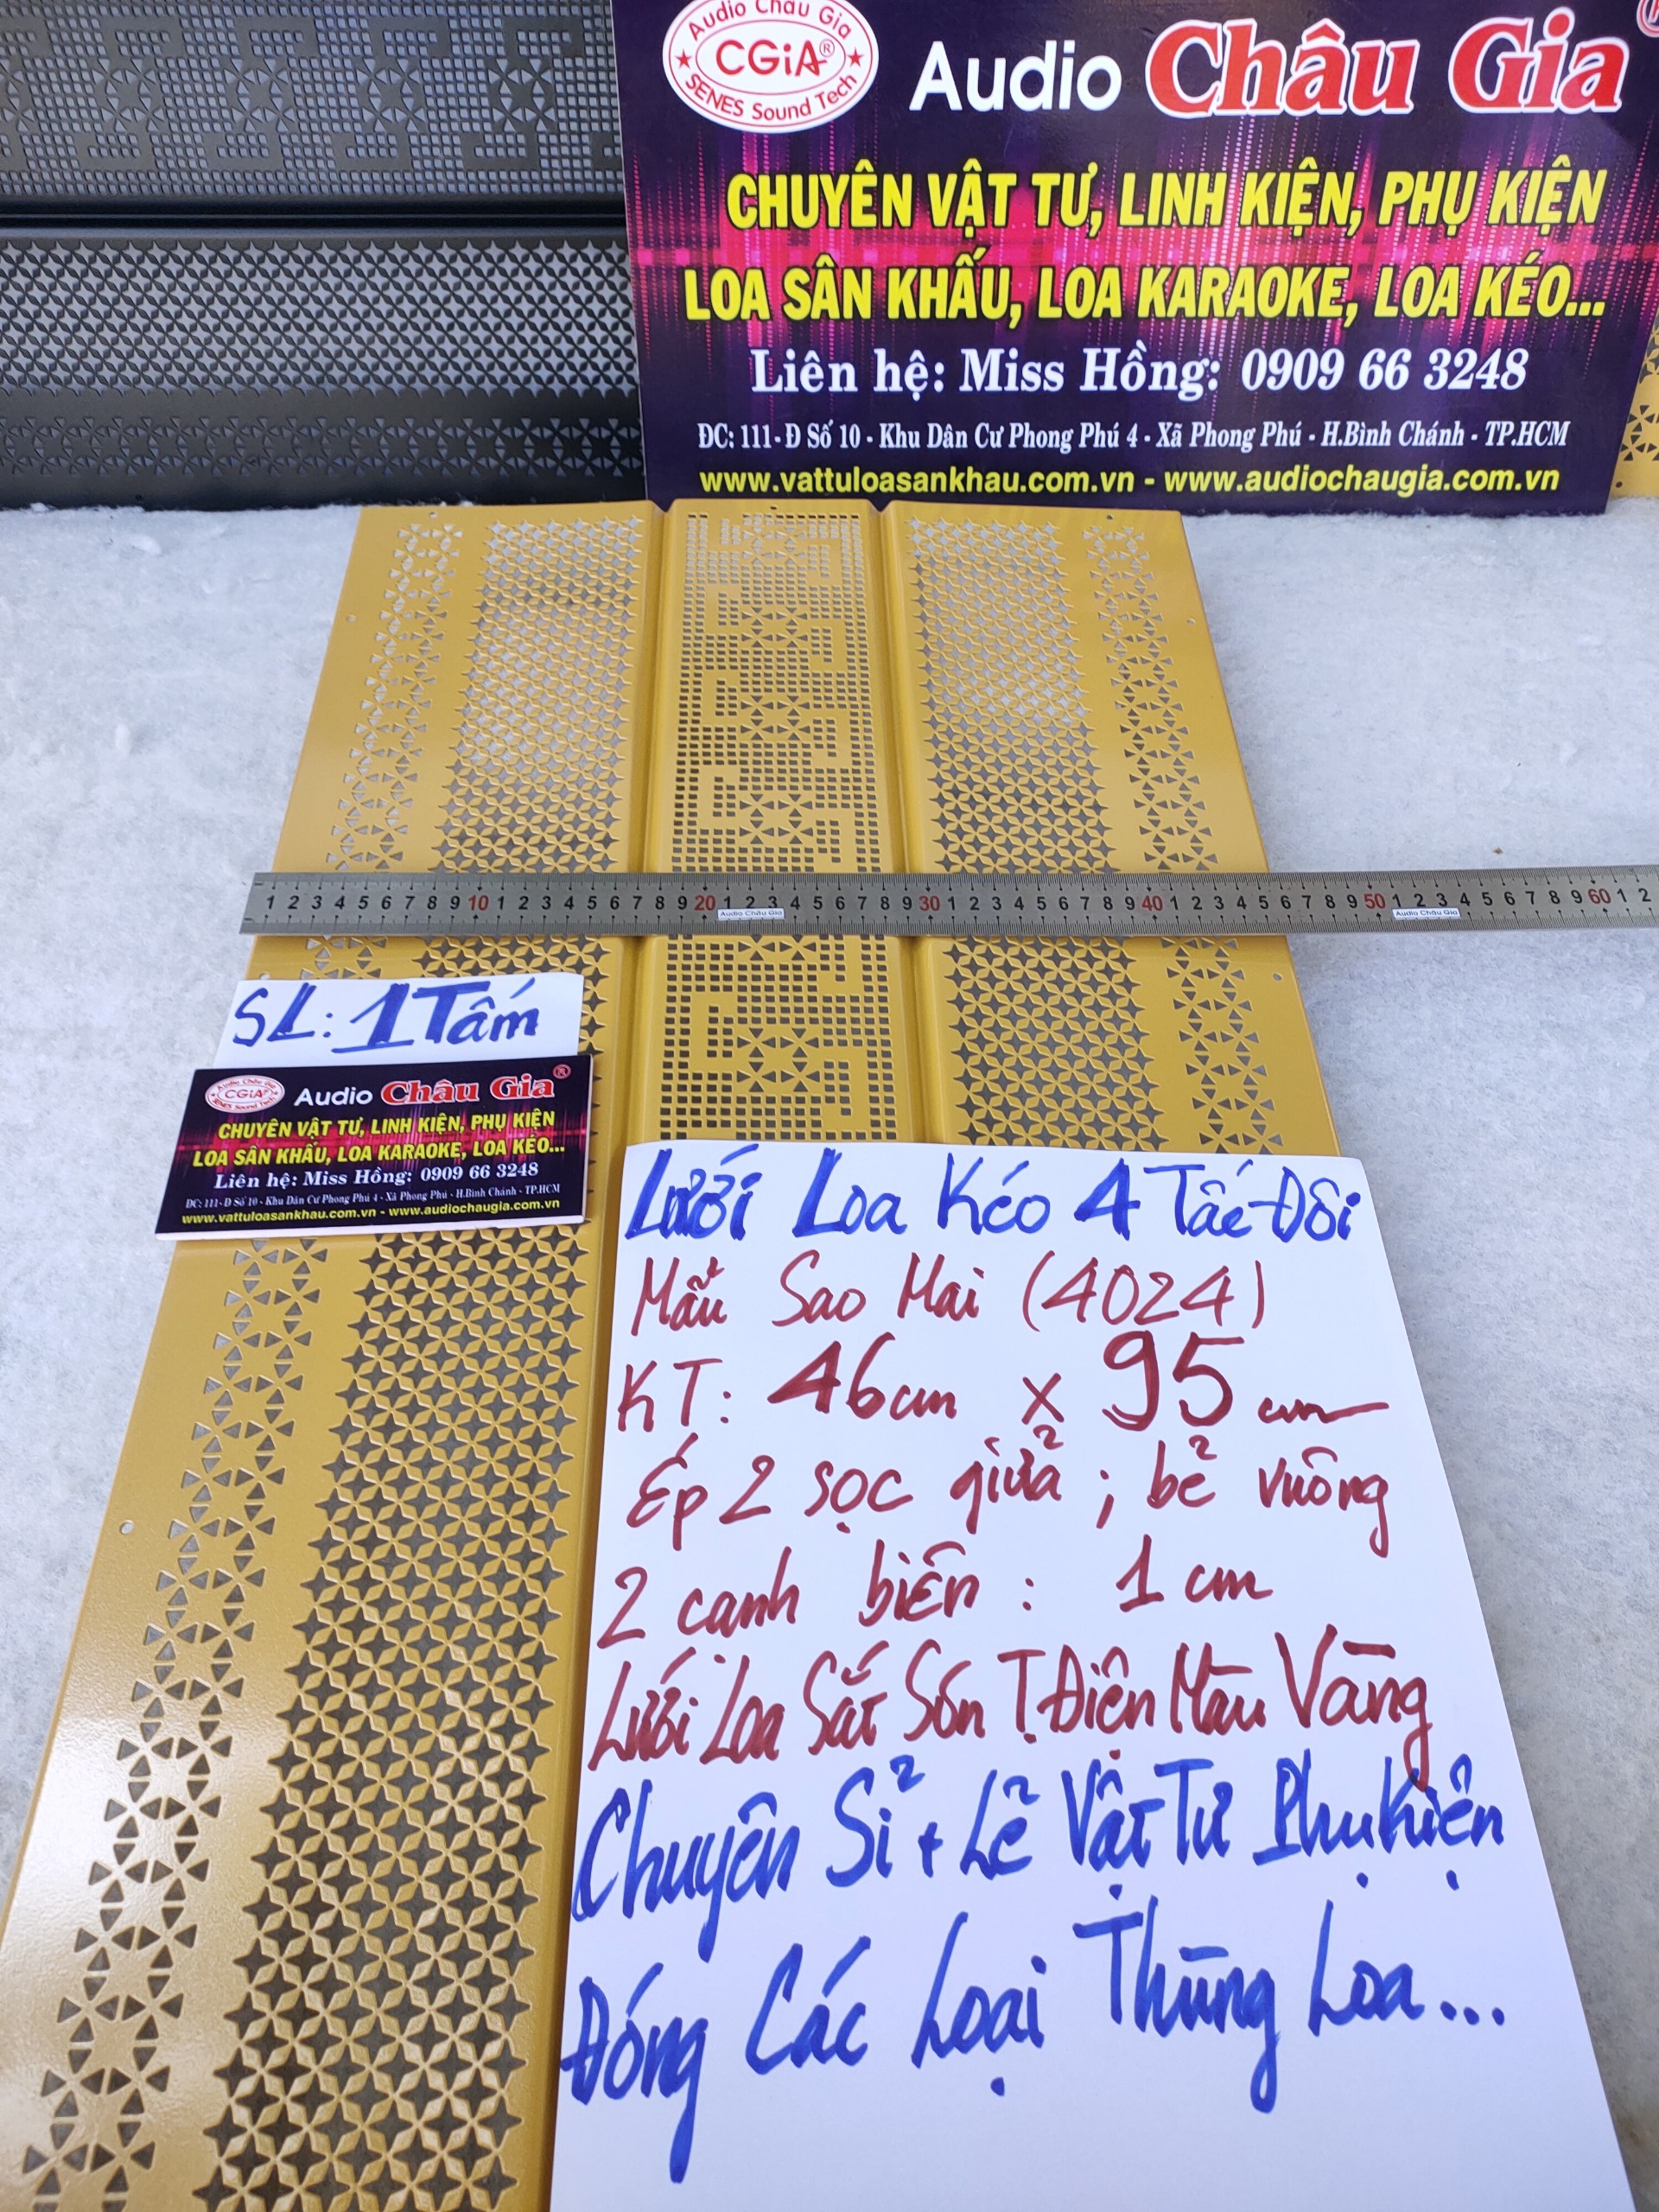 Audio Châu Gia
CGiA®
SENES Sound Tech
Audio Châu Gia®
CHUYÊN VẬT TƯ, LINH KIỆN, PHỤ KIỆN
LOA SÂN KHẤU, LOA KARAOKE, LOA KÉO...
Liên hệ: Miss Hồng: 0909 66 3248
ĐC: 111- Đ Số 10 - Khu Dân Cư Phong Phú 4 - Xã Phong Phú - H.Bình Chánh - TP.HCM
www.vattuloasankhau.com.vn - www.audiochaugia.com.vn
1 2 3 4 5 6 7 8 9 10 1 2 3 4 5 6 7 8 9 20 1 2 3 4 5 6 7 8 9 30 1 2 3 4 5 6 7 8 9 40 1 2 3 4 5 6 7 8 9 50 1 2 3 4 5 6 7 8 9 60 1 2
Audio Châu Gia Audio Châu Gia
SL: 1 Tấm
Audio Châu Gia
CGiA®
SENES Sound Tech
Audio Châu Gia®
CHUYÊN VẬT TƯ, LINH KIỆN, PHỤ KIỆN
LOA SÂN KHẤU, LOA KARAOKE, LOA KÉO...
Liên hệ: Miss Hồng: 0909 66 3248
ĐC: 111- Đ Số 10 - Khu Dân Cư Phong Phú 4 - Xã Phong Phú - H.Bình Chánh - TP.HCM
www.vattuloasankhau.com.vn - www.audiochaugia.com.vn
Lưới Loa Kéo 4 Tấc Đôi
Mẫu Sao Mai (4024)
KT: 46cm x 95cm
Ép 2 sọc giữa ; bẻ vuông
2 cạnh biên : 1cm
Lưới Loa Sắt Sơn T.Điện Màu Vàng
Chuyên Sỉ + Lẻ Vật Tư Phụ Kiện
Đóng Các Loại Thùng Loa...